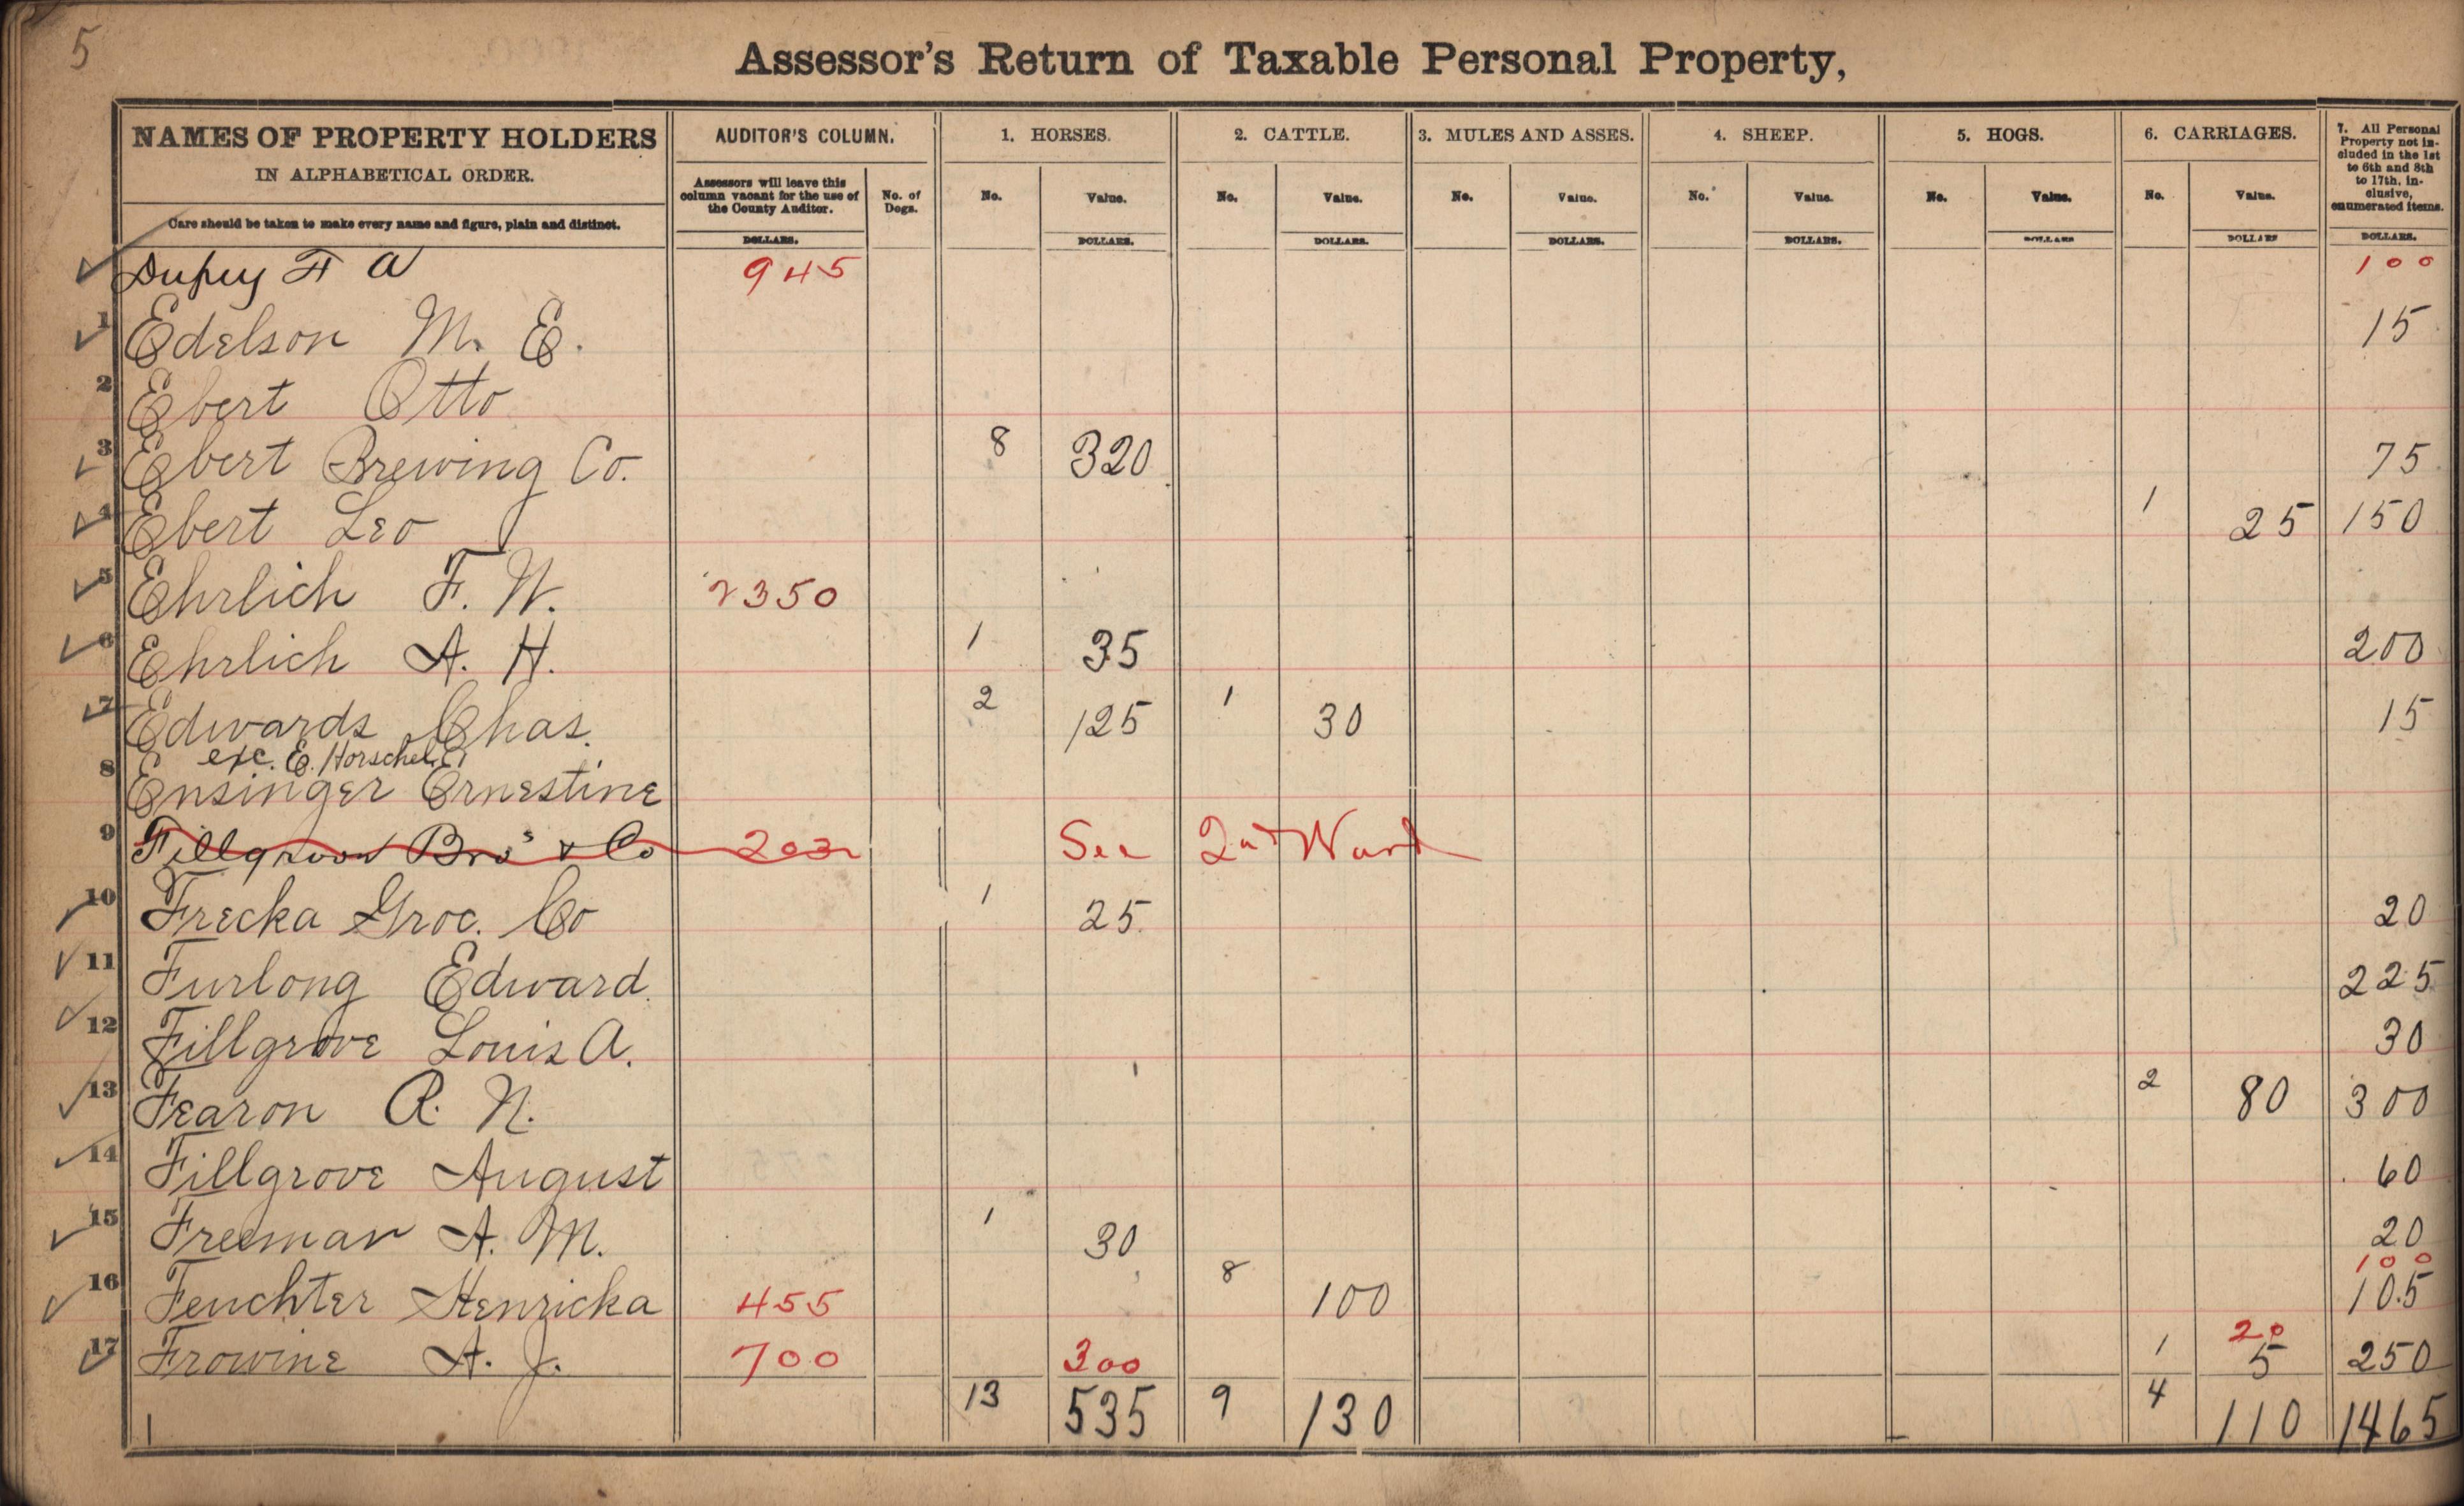 5
Assessor's Return of Taxable Personal Property,
NAMES OF PROPERTY HOLDERS
IN ALPHABETICAL ORDER.
Care should be taken to make every name and figure, plain and distinct.
AUDITOR'S COLUMN.
Assessors will leave this column vacant for the use of the County Auditor.
DOLLARS.
No. of Dogs.
1. HORSES.
No. Value.
DOLLARS.
2. CATTLE.
No. Value.
DOLLARS.
3. MULES AND ASSES.
No. Value.
DOLLARS.
4. SHEEP.
No. Value.
DOLLARS.
5. HOGS.
No. Value.
DOLLARS
6. CARRIAGES.
No. Value.
DOLLARS
7. All Personal Property not included in the 1st to 6th and 8th to 17th, inclusive, enumerated items.
DOLLARS.
Dupuy F A 945 100
1 Edelson M. E. 15
2 Ebert Otto
3 Ebert Brewing Co. 8 320 75
4 Ebert Leo 1 25 150
5 Ehrlich F. W. 2350
6 Ehrlich A. H. 1 35 200
7 Edwards Chas. 2 125 1 30 15
exc. E. Horschel
8 Ensinger Ernestine
9 Fillgrove Bro's & Co 203 See 2nd Ward
10 Frecka Groc. Co 1 25 20
11 Furlong Edward 225
12 Fillgrove Louis A. 30
13 Fearon R. N. 2 80 300
14 Fillgrove August 60
15 Freeman A. M. 1 30 20
100
16 Feuchter Henricka 455 8 100 105
20
17 Frowine A. J. 700 300 1 5 250
13 535 9 130 4 110 1465